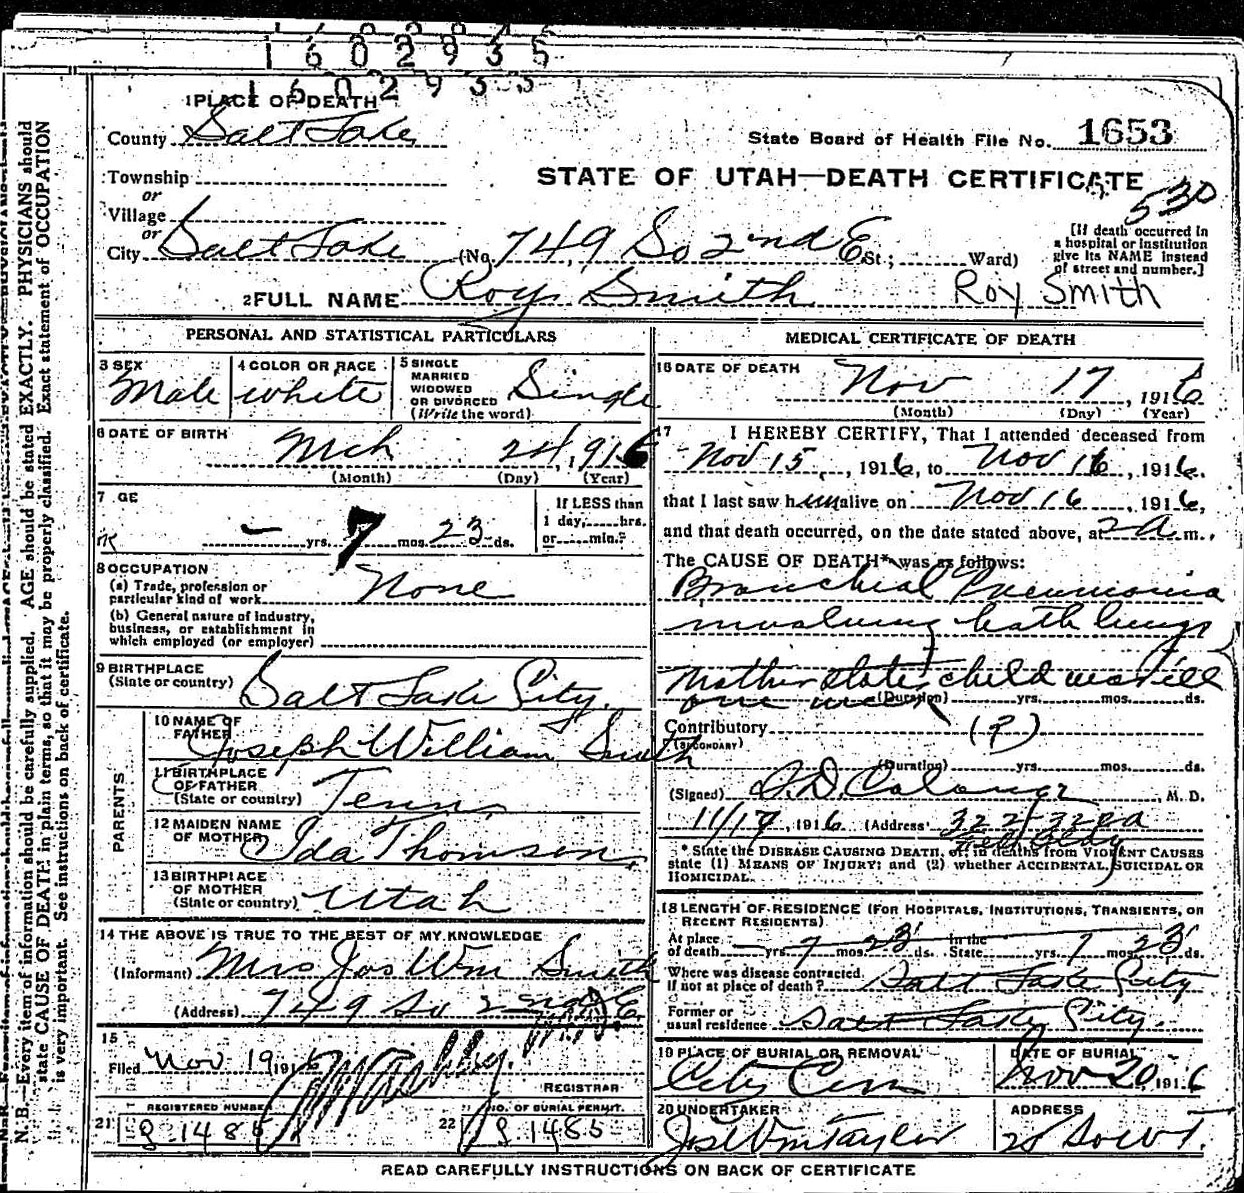 1602935
1602935
1 PLACE OF DEATH
County Salt Lake
State Board of Health File No. 1653
Township
or
STATE OF UTAH—DEATH CERTIFICATE
Village
or
530
City Salt Lake (No. 749 So 2nd E St.; Ward)
[If death occurred in a hospital or institution give its NAME instead of street and number.]
2 FULL NAME Roy Smith Roy Smith
PERSONAL AND STATISTICAL PARTICULARS
3 SEX Male
4 COLOR OR RACE white
5 SINGLE MARRIED WIDOWED OR DIVORCED (Write the word) Single
6 DATE OF BIRTH Mch 24, 1916
(Month) (Day) (Year)
7 GE
- yrs. 7 mos. 23 ds.
If LESS than 1 day, hrs. or min.?
8 OCCUPATION
(a) Trade, profession or particular kind of work None
(b) General nature of industry, business, or establishment in which employed (or employer)
9 BIRTHPLACE (State or country) Salt Lake City.
PARENTS
10 NAME OF FATHER Joseph William Smith
11 BIRTHPLACE OF FATHER (State or country) Tenn
12 MAIDEN NAME OF MOTHER Ida Thomson
13 BIRTHPLACE OF MOTHER (State or country) Utah
14 THE ABOVE IS TRUE TO THE BEST OF MY KNOWLEDGE
(Informant) Mrs Jos Wm Smith
(Address) 749 So 2nd E.
15
Filed Nov 19 1916
REGISTRAR
REGISTERED NUMBER
21 1485
NO. OF BURIAL PERMIT.
22 1485
MEDICAL CERTIFICATE OF DEATH
16 DATE OF DEATH Nov 17, 1916
(Month) (Day) (Year)
17 I HEREBY CERTIFY, That I attended deceased from
Nov 15, 1916, to Nov 16, 1916.
that I last saw him alive on Nov 16, 1916,
and that death occurred, on the date stated above, at 2 a.m.
The CAUSE OF DEATH* was as follows:
Bronchial Pneumonia
involving both lungs
Mother states child was ill
one week (Duration) yrs. mos. ds.
Contributory (?)
(SECONDARY)
(Duration) yrs. mos. ds.
(Signed) M. D.
1916 (Address)
* State the DISEASE CAUSING DEATH, or, in deaths from VIOLENT CAUSES
state (1) MEANS OF INJURY; and (2) whether ACCIDENTAL, SUICIDAL OR
HOMICIDAL.
18 LENGTH OF RESIDENCE (FOR HOSPITALS, INSTITUTIONS, TRANSIENTS, OR
RECENT RESIDENTS)
At place of death yrs. 7 mos. 23 ds. In the State yrs. 7 mos. 23 ds.
Where was disease contracted, if not at place of death? Salt Lake City
Former or usual residence Salt Lake City.
19 PLACE OF BURIAL OR REMOVAL City Cem
DATE OF BURIAL Nov 20 1916
20 UNDERTAKER Jos Wm Taylor
ADDRESS
READ CAREFULLY INSTRUCTIONS ON BACK OF CERTIFICATE
N. B.—Every item of information should be carefully supplied. AGE should be stated EXACTLY. PHYSICIANS should
state CAUSE OF DEATH in plain terms, so that it may be properly classified. Exact statement of OCCUPATION
is very important. See instructions on back of certificate.